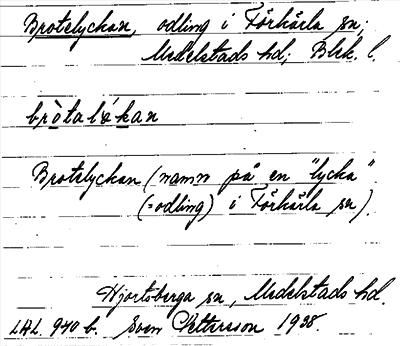 Brotelyckan, odling i Förkärla sn;
Medelstads hd; Blek. l.
bròtalýkan
Brotelyckan (namn på en "lycka"
(=odling) i Förkärla sn).
Hjortsberga sn, Medelstads hd.
LAL. 940 b. Sven Pettersson 1938.